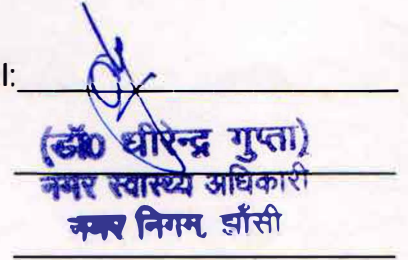 l:
(डॉ0 धीरेन्द्र गुप्ता)
नगर स्वास्थ्य अधिकारी
नगर निगम, झाँसी